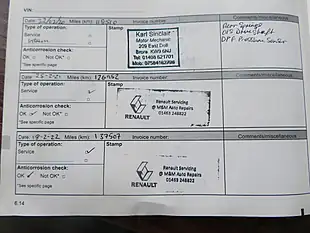 VIN:
Date: Miles (km): Invoice number: Comments/miscellaneous
Type of operation: Stamp
Service
Karl Sinclair
Motor Mechanic
209 East Doll
Brora KW9 6NJ
Tel 01408 621701
Rear Springs
O/S Driveshaft
DPF Pressure Sensor
Anticorrosion check:
OK □ Not OK* □
*See specific page
Date: 25-2-21 Miles (km): Invoice number: Comments/miscellaneous
Type of operation: Stamp
Service
Renault Servicing
@ M&M Auto Repairs
01463 248822
RENAULT
Anticorrosion check:
OK Not OK* □
*See specific page
Date: Miles (km): 137507 Invoice number: Comments/miscellaneous
Type of operation: Stamp
Service
Renault Servicing
@ M&M Auto Repairs
01463 248822
RENAULT
Anticorrosion check:
OK Not OK* □
*See specific page
6.14